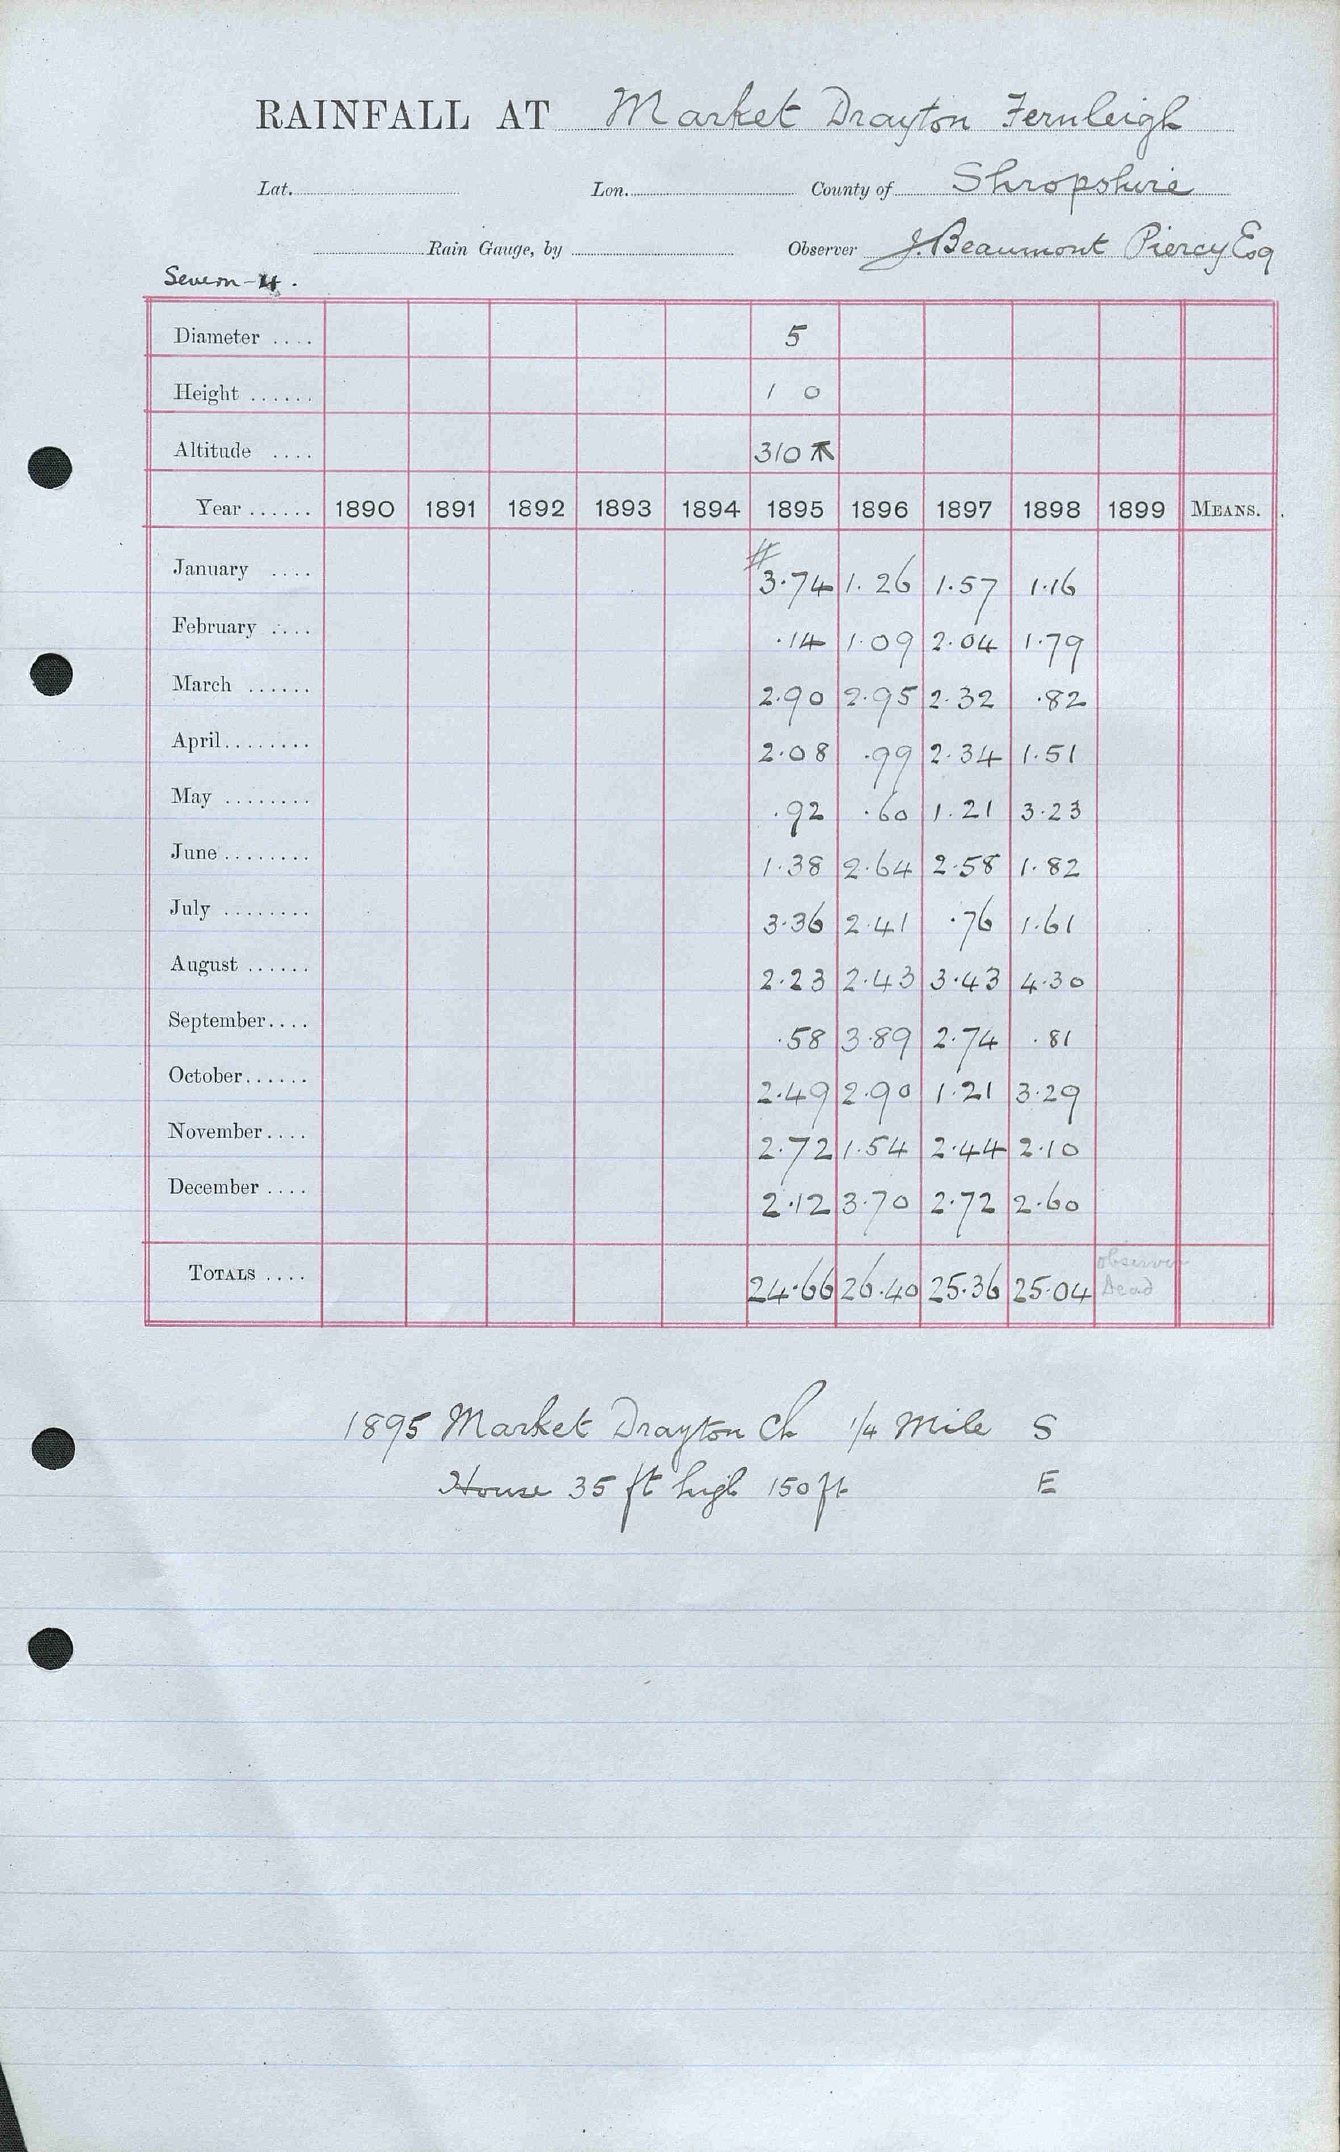 RAINFALL AT Market Drayton Fernleigh
Lat. Lon. County of Shropshire
Rain Gauge, by Observer J. Beaumont Piercy Esq
Severn - 4.
Diameter .... 5
Height ...... 1 0
Altitude .... 310
Year ...... 1890 1891 1892 1893 1894 1895 1896 1897 1898 1899 MEANS.
#
January .... 3.74 1.26 1.57 1.16
February .... .14 1.09 2.04 1.79
March ...... 2.90 2.95 2.32 .82
April ........ 2.08 .99 2.34 1.51
May ........ .92 .60 1.21 3.23
June ........ 1.38 2.64 2.58 1.82
July ........ 3.36 2.41 .76 1.61
August ...... 2.23 2.43 3.43 4.30
September .... .58 3.89 2.74 .81
October ...... 2.49 2.90 1.21 3.29
November .... 2.72 1.54 2.44 2.10
December .... 2.12 3.70 2.72 2.60
TOTALS .... 24.66 26.40 25.36 25.04 observer Dead
1895 Market Drayton Ch 1/4 Mile S
House 35 ft high 150 ft E